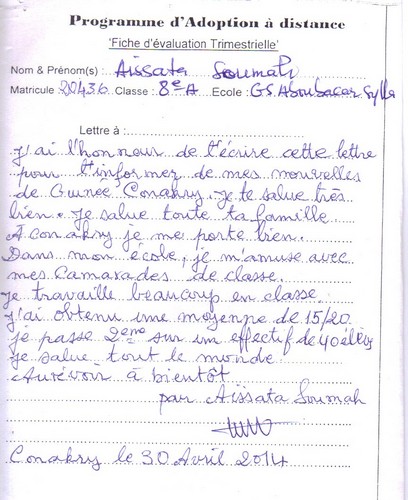 Programme d'Adoption à distance
'Fiche d'évaluation Trimestrielle'
Nom & Prénom(s) : Aissata Soumah
Matricule 20436 Classe : 8e A Ecole : GS Aboubacar Sylla
Lettre à :
J'ai l'honneur de t'écrire cette lettre
pour t'informez de mes nouvelles
de Guinée Conakry. Je te salue très
bien. Je salue toute ta famille
A conakry je me porte bien.
Dans mon école, je m'amuse avec
mes Camarades de classe.
Je travaille beaucoup en classe.
J'ai obtenu une moyenne de 15/20
je passe 2eme sur un effectif de 40 élèves
je salue tout le monde
Aurévoir à bientôt
par Aissata Soumah
Conakry le 30 Avril 2014